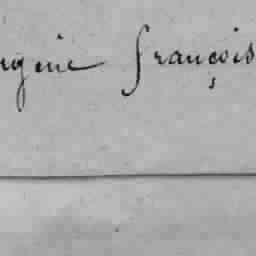 ugine françois